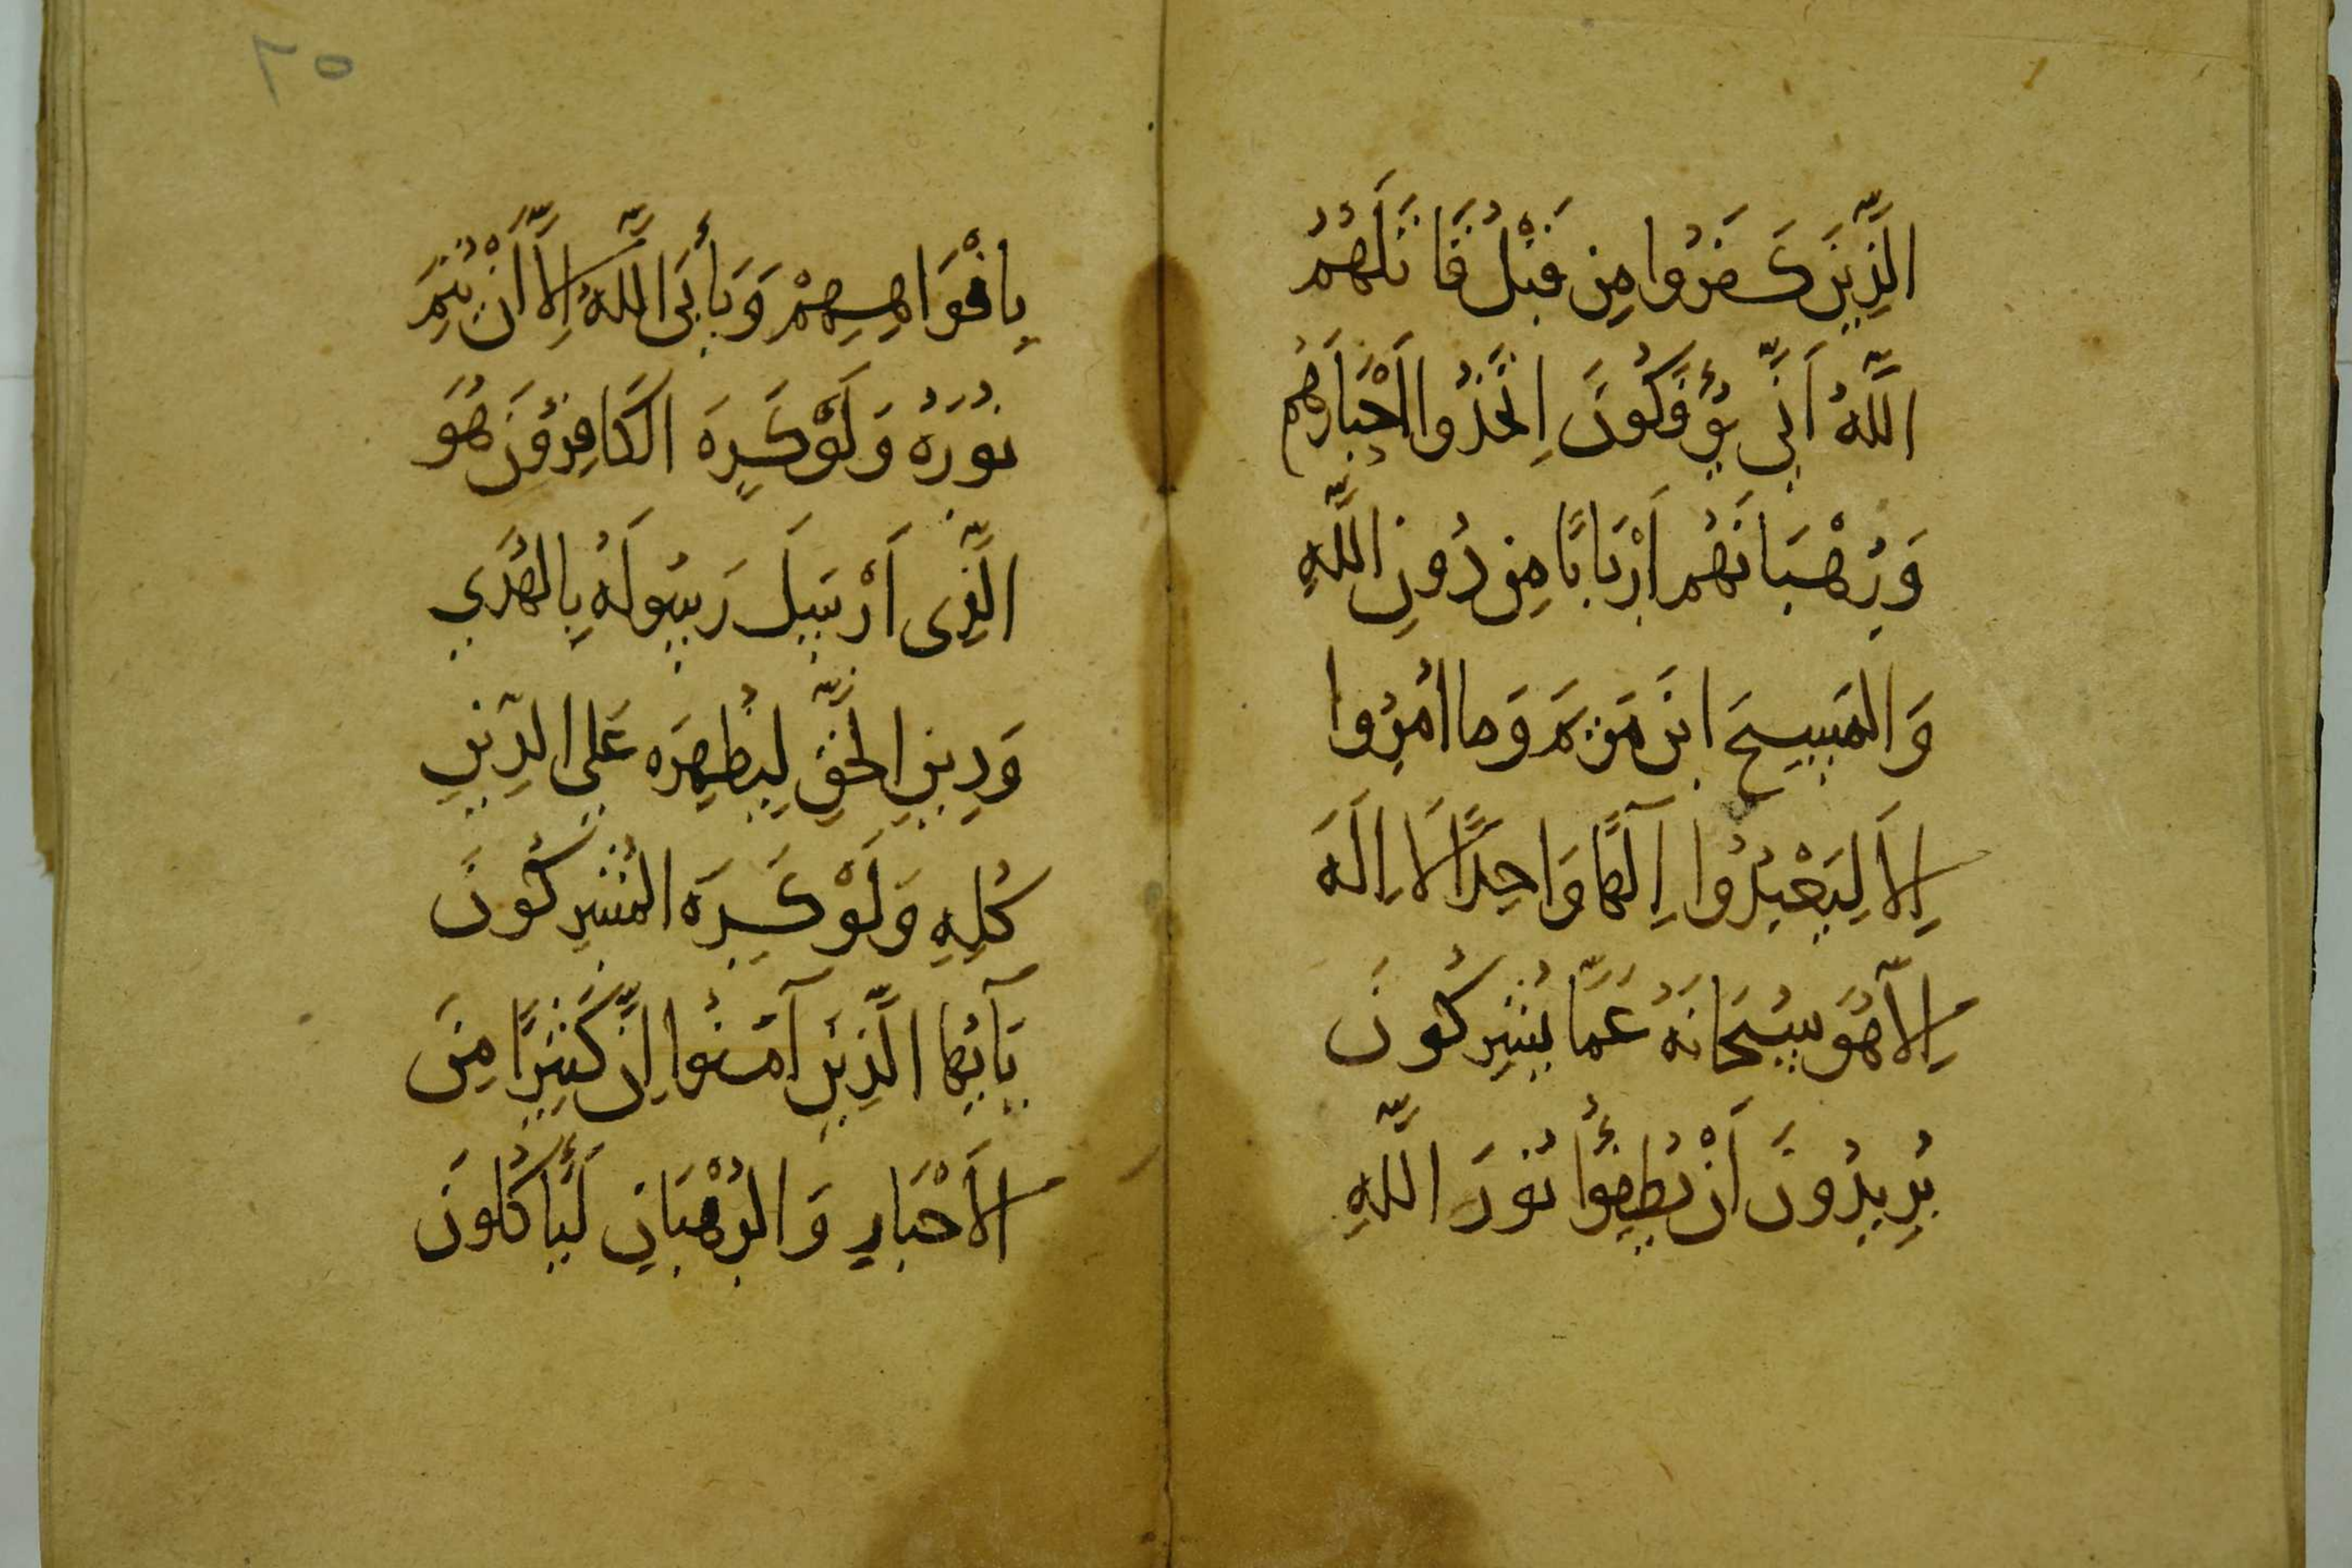 الَّذِينَ كَفَرُوا مِن قَبْلُ قَاتَلَهُمُ
اللَّهُ اَنَّى يُؤْفَكُونَ اِتَّخَذُوا اَحْبَارَهُم
وَرُهْبَانَهُم اَرْبَابًا مِن دُونِ اللَّهِ
وَالمَسِيحَ ابنَ مَريَمَ وَمَا اُمِرُوا
اِلاَ لِيَعْبُدُوا اِلَهًا وَاحِدًا لاَ اِلَهَ
اِلاَّ هُوَ سُبحَانَهُ عَمَّا يُشرِكُونَ
يُرِيدُونَ اَنْ يُطفِؤُا نُورَ اللَّهِ
٢٥
بِافْوَاهِهِمْ وَيَأبَى اللَّهُ اِلاَّ اَنْ يُتِمَ
نُورَهُ وَلَوْ كَرِهَ الكَافِرُونَ هُوَ
الَّذِى اَرْسَلَ رَسُولَهُ بِالهُدَي
وَدِينِ الحَقِّ لِيُظهِرَه عَلَي الدِّينِ
كُلِهِ وَلَوْ كَرِهَ المُشرِكُونَ
يَآيُهَا الَّذِينَ آمَنُوا اِنَّ كَثِيرًا مِنَ
الاَحْبَارِ وَالرُهْبَانِ لَيَأكُلُونَ